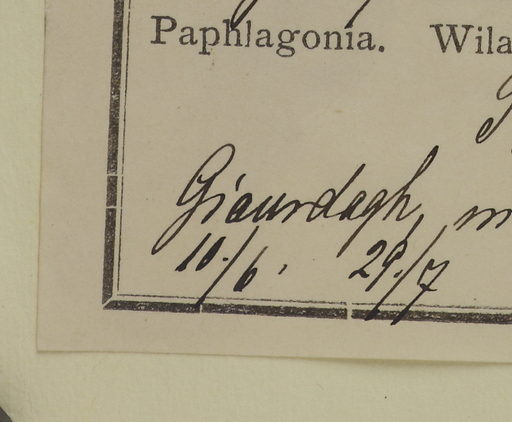 Paphlagonia. Wila
Giaurdagh, m
10./6. 29./7